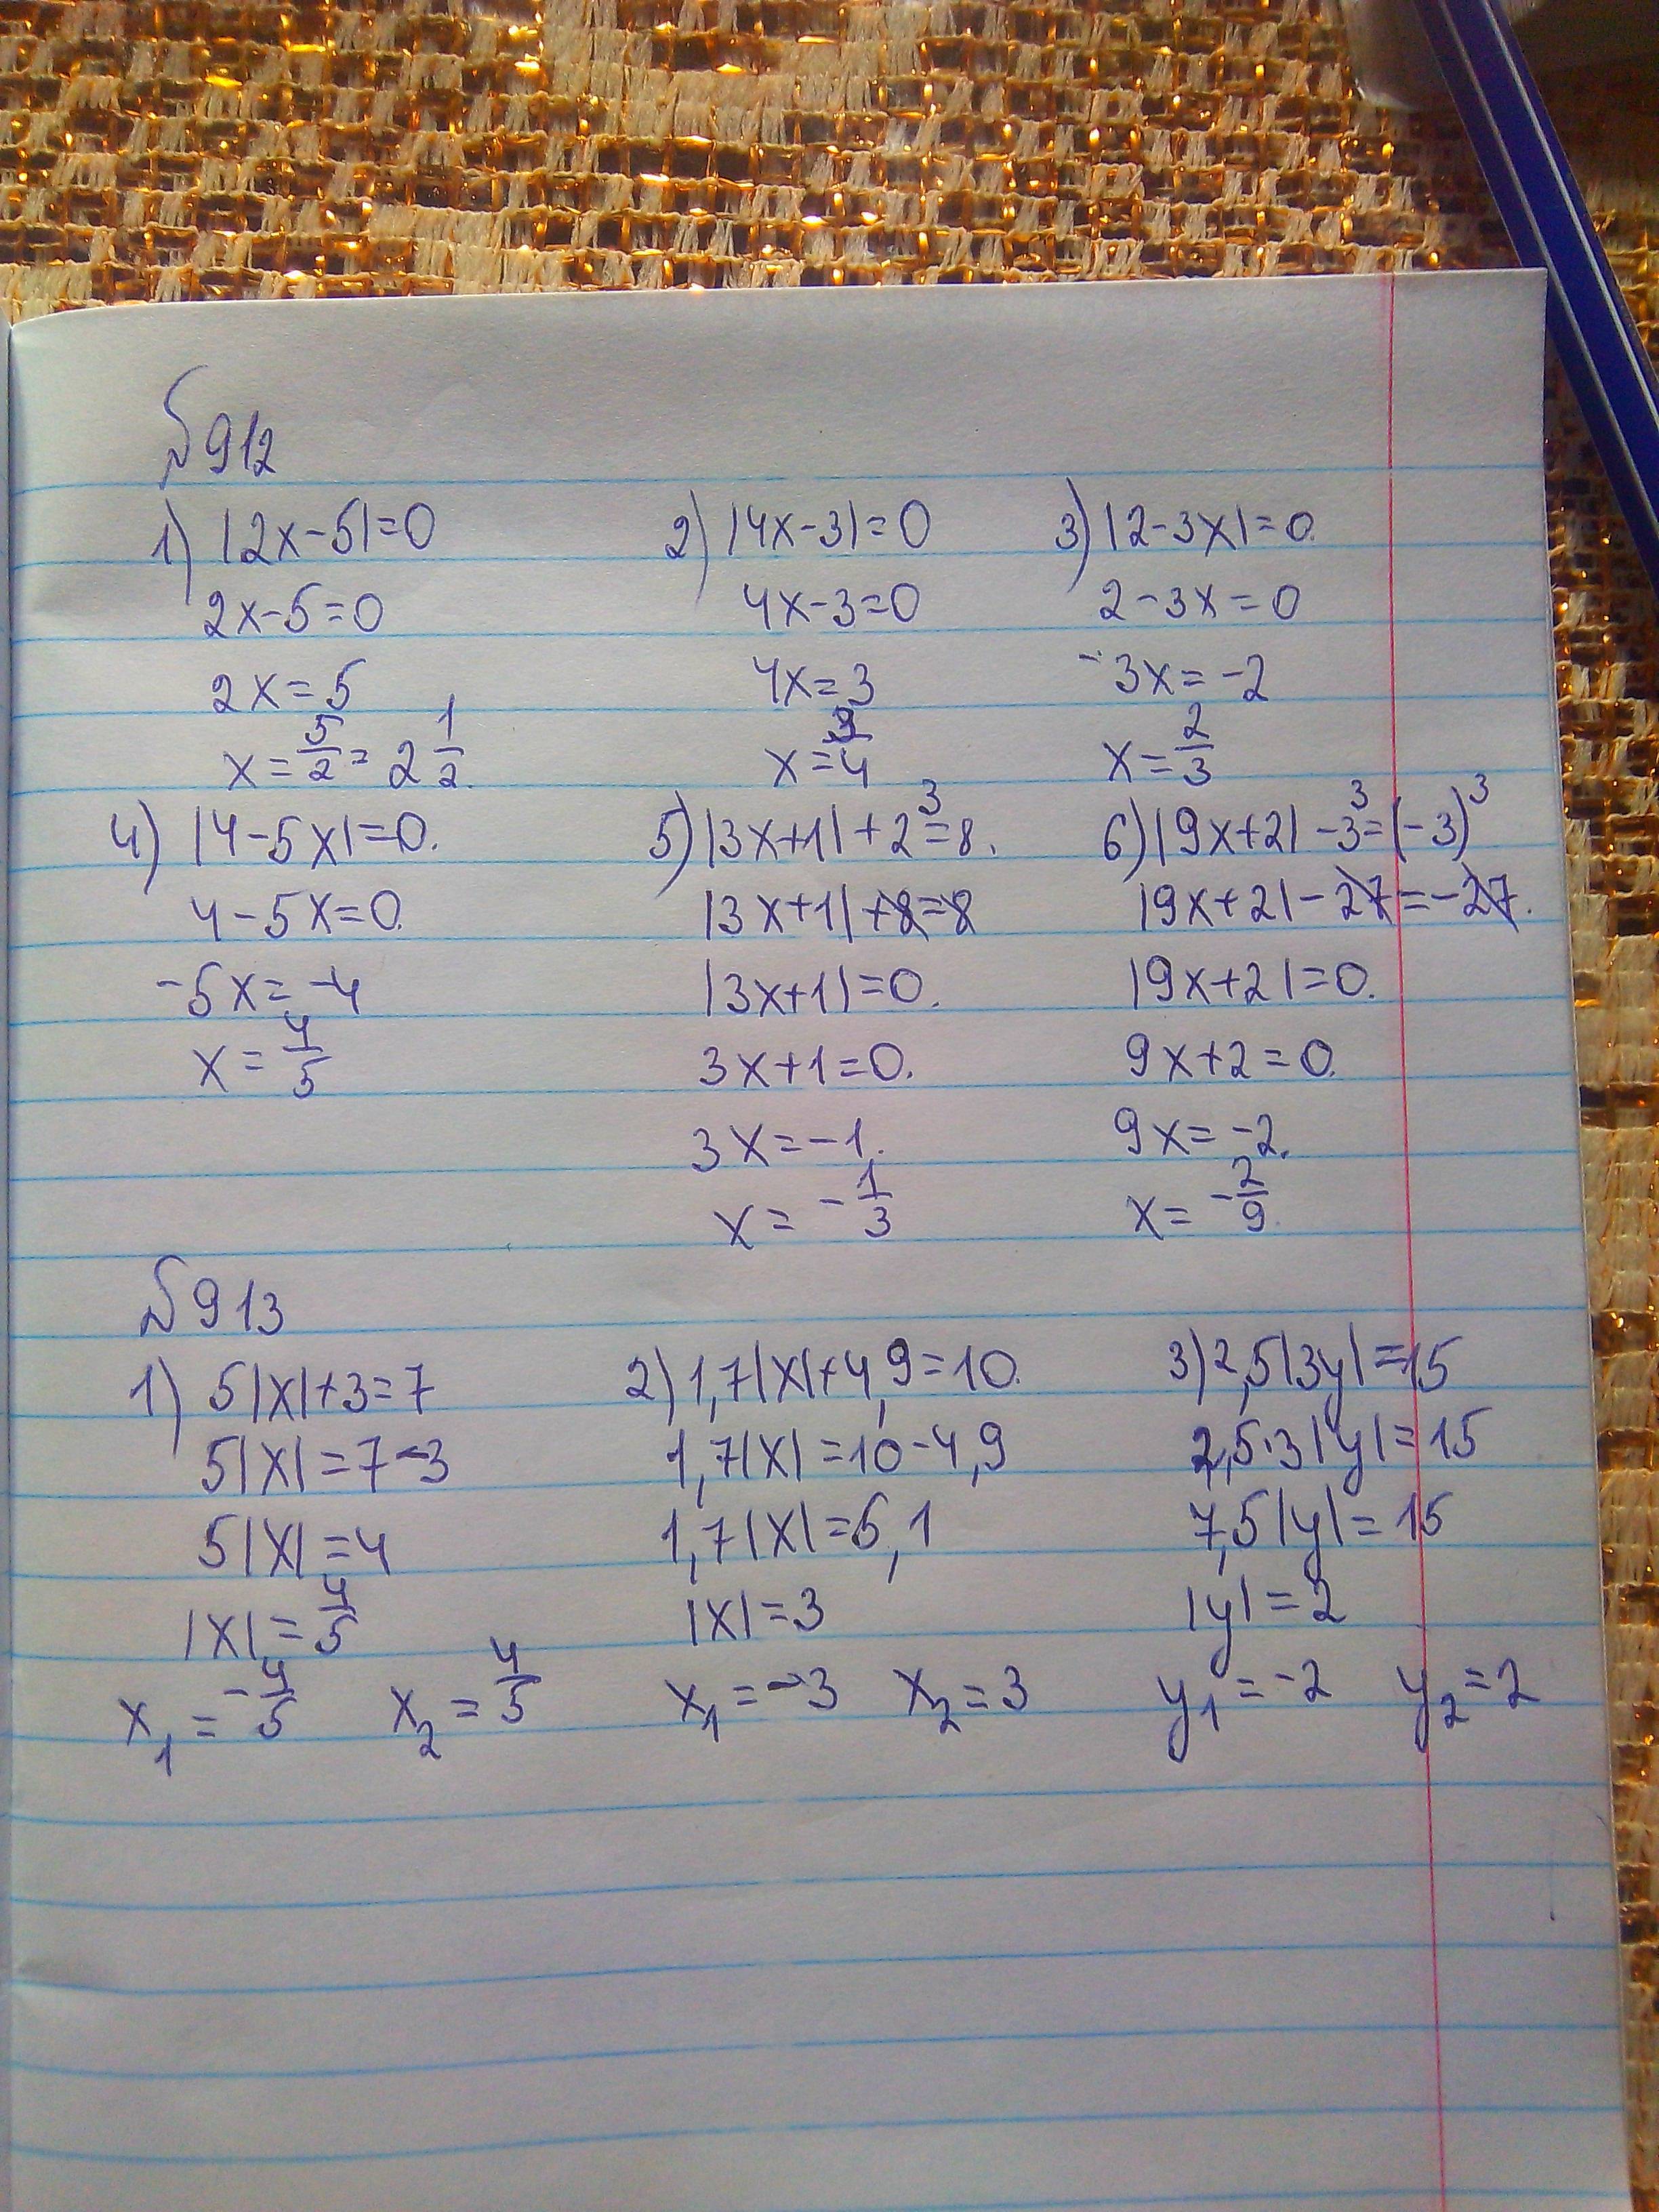 №912
1) |2x-5|=0
2x-5=0
2x=5
x=5/2=2 1/2.
2) |4x-3|=0
4x-3=0
4x=3
x=3/4
3) |2-3x|=0.
2-3x=0
-3x=-2
x=2/3
4) |4-5x|=0.
4-5x=0.
-5x=-4
x=4/5
5) |3x+1|+2³=8.
|3x+1|+8=8
|3x+1|=0.
3x+1=0.
3x=-1.
x=-1/3
6) |9x+2|-3³=(-3)³
|9x+2|-27=-27.
|9x+2|=0.
9x+2=0.
9x=-2.
x=-2/9.
№913
1) 5|x|+3=7
5|x|=7-3
5|x|=4
|x|=4/5
x₁=-4/5 x₂=4/5
2) 1,7|x|+4,9=10.
1,7|x|=10-4,9
1,7|x|=5,1
|x|=3
x₁=-3 x₂=3
3) 2,5|3y|=15
2,5·3|y|=15
7,5|y|=15
|y|=2
y₁=-2 y₂=2